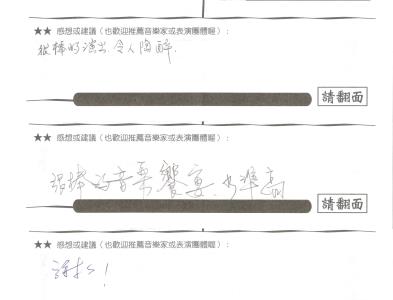 ★★ 感想或建議（也歡迎推薦音樂家或表演團體喔）：
很棒的演出,令人陶醉.
請翻面
★★ 感想或建議（也歡迎推薦音樂家或表演團體喔）：
很棒的音樂饗宴,水準高
請翻面
★★ 感想或建議（也歡迎推薦音樂家或表演團體喔）：
謝謝!